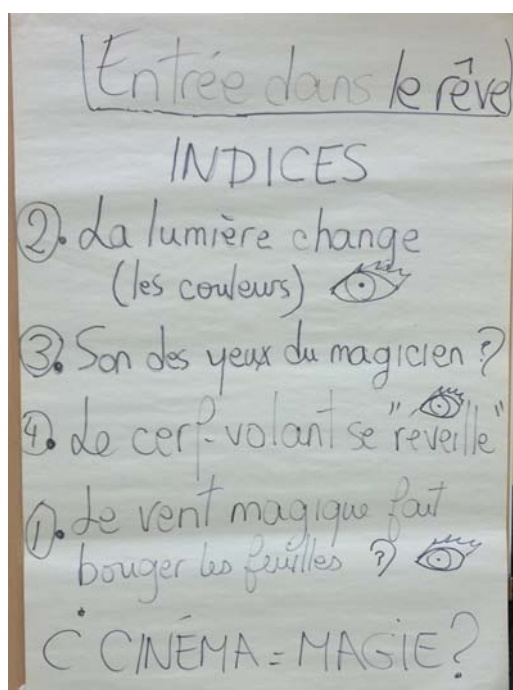 Entrée dans le rêve
INDICES
②. La lumière change
(les couleurs)
③. Son des yeux du magicien ?
④. Le cerf-volant se "réveille"
①. Le vent magique fait
bouger les feuilles ?
CINÉMA = MAGIE ?